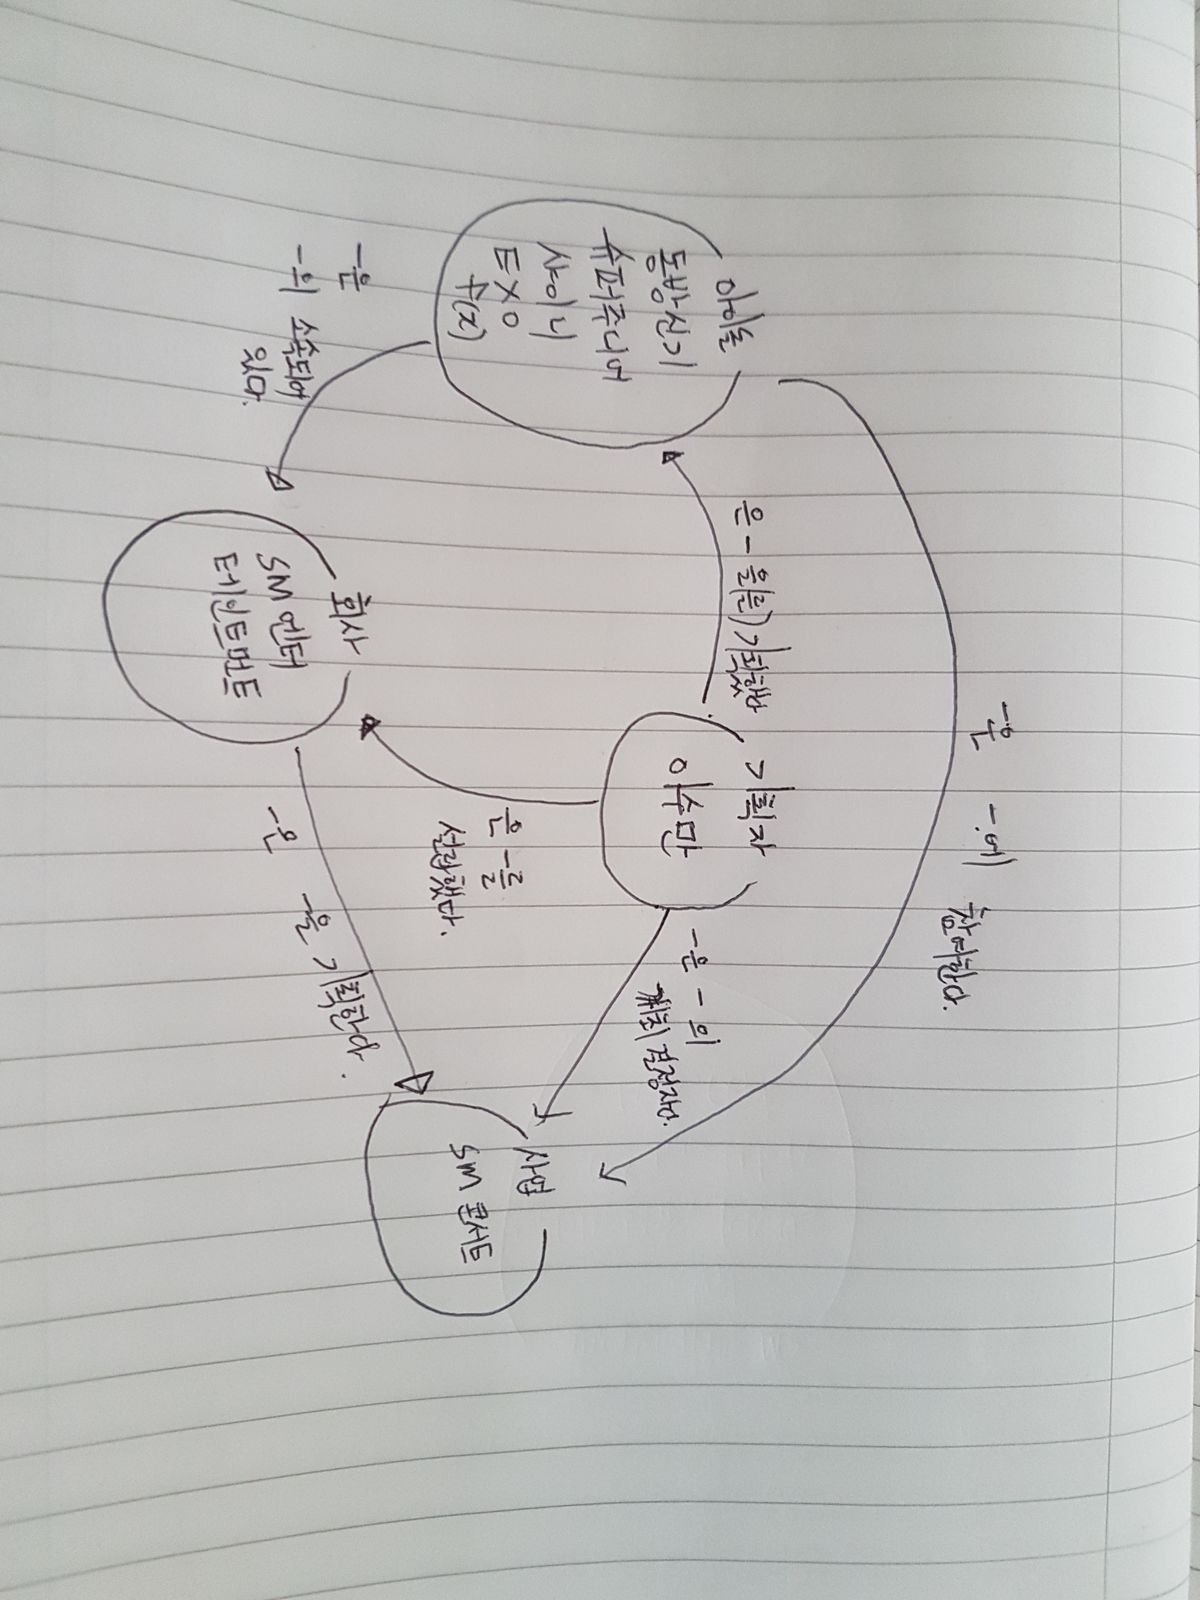 아이돌
동방신기
슈퍼주니어
샤이니
EXO
f(x)
-은
-의 소속되어
있다.
은 - 을(를) 기획했다
기획자
이수만
-은
-에 참여한다.
회사
SM 엔터
테인트먼트
은 -를
설립했다.
-은 - 의
개최 결정자다.
-은
-을 기획한다.
사업
SM 콘서트